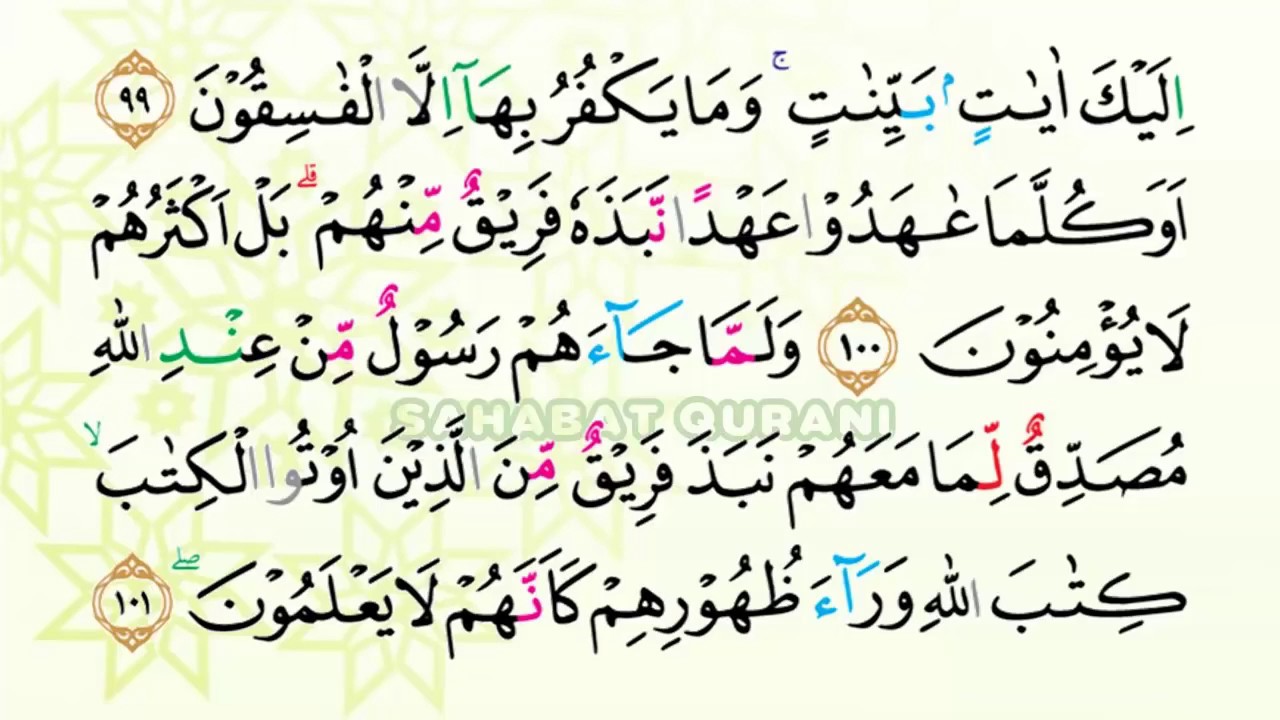 اِلَيْكَ اٰيٰتٍۢ بَيِّنٰتٍ ۚ وَمَا يَكْفُرُ بِهَآ اِلَّا الْفٰسِقُوْنَ ٩٩
اَوَكُلَّمَا عٰهَدُوْا عَهْدًا نَّبَذَهٗ فَرِيْقٌ مِّنْهُمْ ۗ بَلْ اَكْثَرُهُمْ
لَا يُؤْمِنُوْنَ ١٠٠ وَلَمَّا جَآءَهُمْ رَسُوْلٌ مِّنْ عِنْدِ اللّٰهِ
SAHABAT QURANI
مُصَدِّقٌ لِّمَا مَعَهُمْ نَبَذَ فَرِيْقٌ مِّنَ الَّذِيْنَ اُوْتُوا الْكِتٰبَ ۙ
كِتٰبَ اللّٰهِ وَرَآءَ ظُهُوْرِهِمْ كَاَنَّهُمْ لَا يَعْلَمُوْنَ ۖ ١٠١